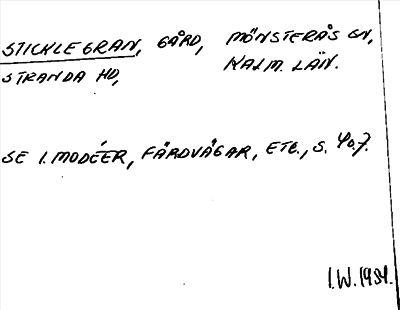 STICKLEGRAN, GÅRD, MÖNSTERÅS SN,
STRANDA HD, KALM. LÄN.
SE I. MODÉER, FÄRDVÄGAR, ETC., S. 40 f.
I.W. 1984.